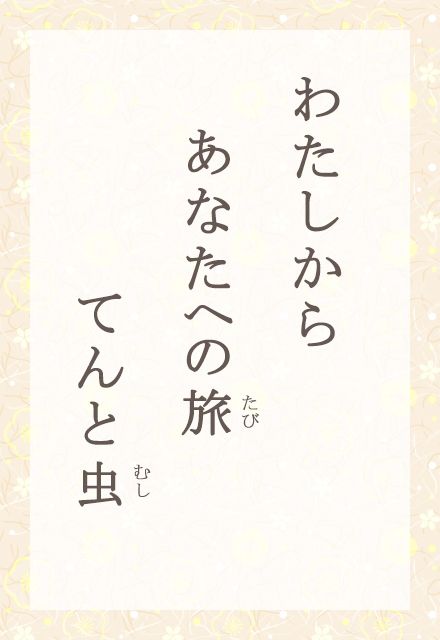 わたしから
あなたへの旅
たび
てんと虫
むし